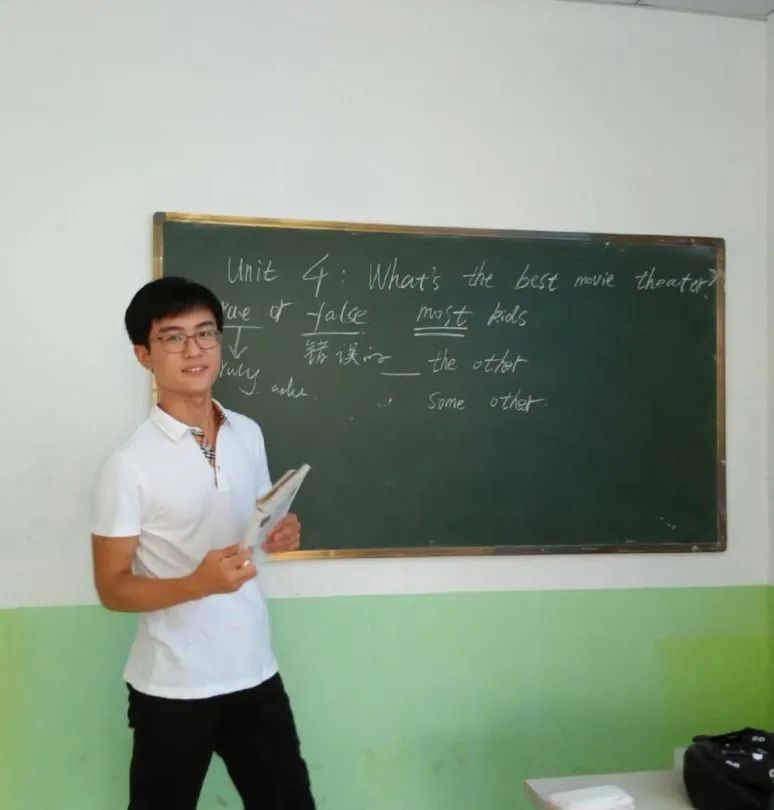 Unit 4: What's the best movie theater?
or false most kids.
错误的 the other
some other.